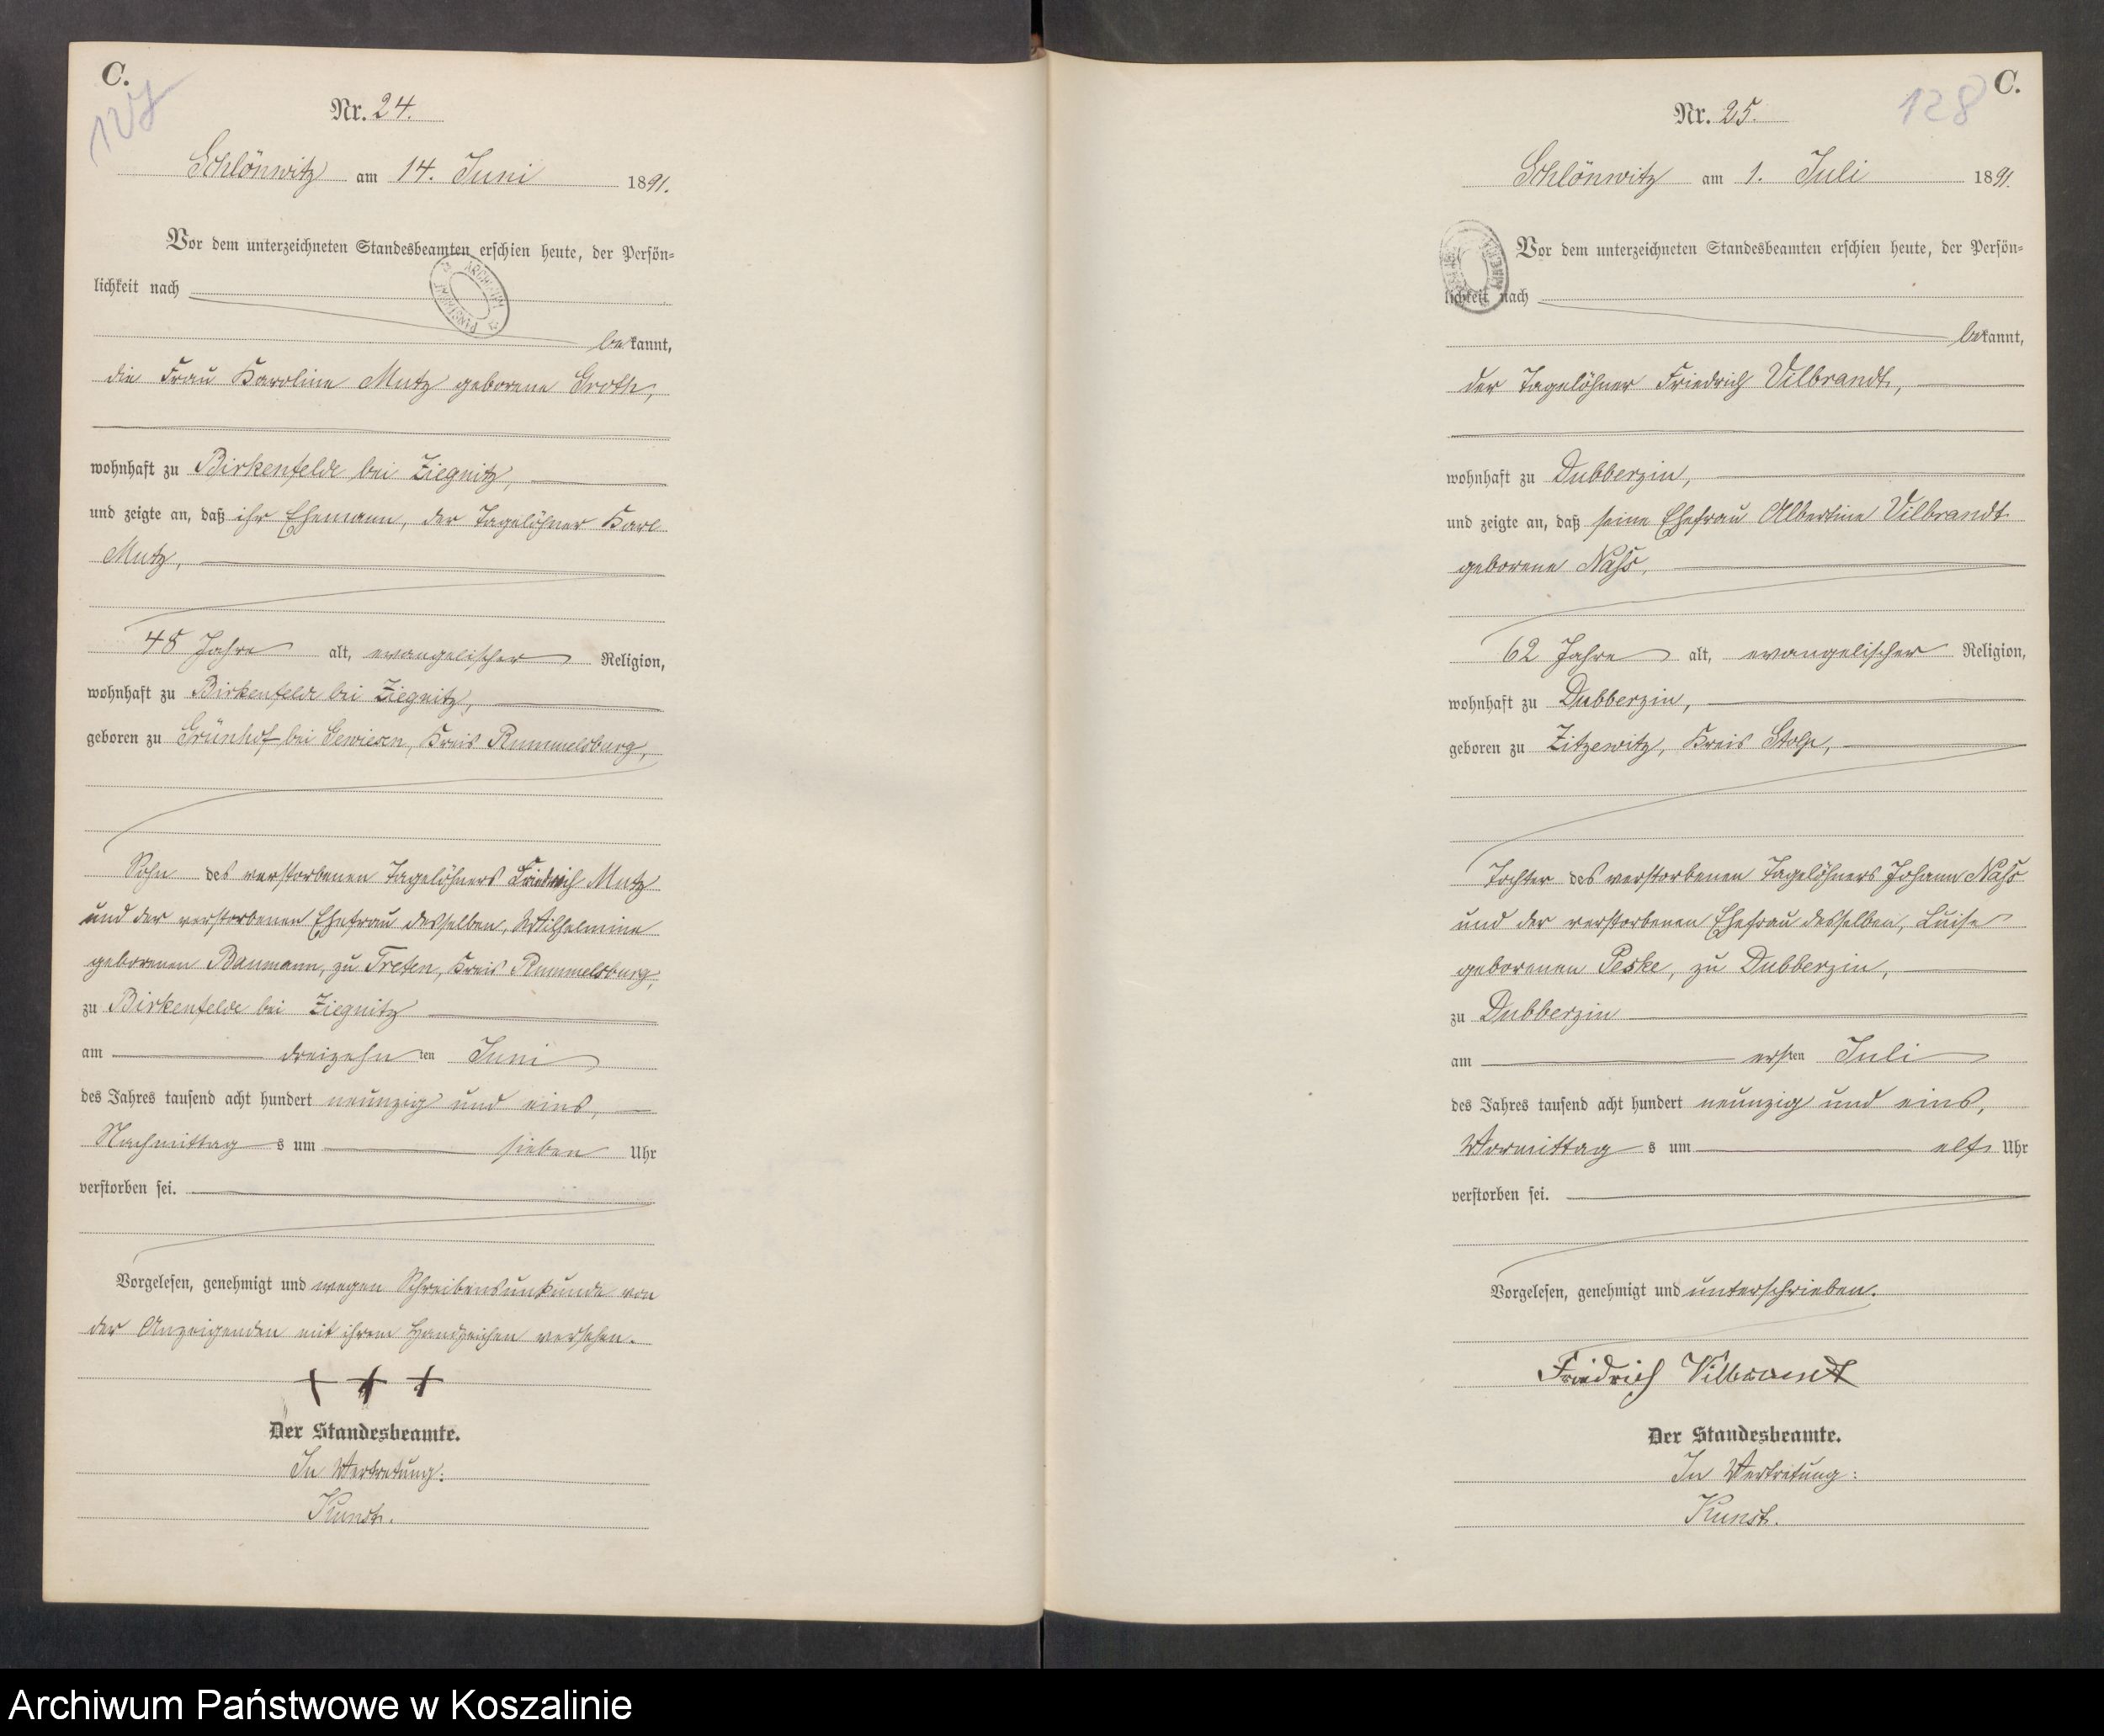 C.
127
Nr. 24.
Schlönwitz am 14. Juni 1891.
Vor dem unterzeichneten Standesbeamten erschien heute, der Persön=
lichkeit nach
bekannt,
die Frau Karoline Mutz geborene Groth,
wohnhaft zu Birkenfelde bei Ziegnitz,
und zeigte an, daß ihr Ehemann, der Tagelöhner Karl
Mutz,
48 Jahre alt, evangelischer Religion,
wohnhaft zu Birkenfelde bei Ziegnitz,
geboren zu Grünhof bei Gewiesen, Kreis Rummelsburg,
Sohn des verstorbenen Tagelöhners Friedrich Mutz
und der verstorbenen Ehefrau desselben, Wilhelmine
geborenen Baumann, zu Treten, Kreis Rummelsburg,
zu Birkenfelde bei Ziegnitz
am dreizehn ten Juni
des Jahres tausend acht hundert neunzig und eins,
Nachmittag s um sieben Uhr
verstorben sei.
Vorgelesen, genehmigt und wegen Schreibensunkunde von
der Anzeigenden mit ihrem Handzeichen versehen.
+ + +
Der Standesbeamte.
In Vertretung:
Kunst.
C.
128
Nr. 25.
Schlönwitz am 1. Juli 1891.
Vor dem unterzeichneten Standesbeamten erschien heute, der Persön=
lichkeit nach
bekannt,
der Tagelöhner Friedrich Vilbrandt,
wohnhaft zu Dubberzin,
und zeigte an, daß seine Ehefrau Albertine Vilbrandt
geborene Nass,
62 Jahre alt, evangelischer Religion,
wohnhaft zu Dubberzin,
geboren zu Zitzewitz, Kreis Stolp,
Tochter des verstorbenen Tagelöhners Johann Nass
und der verstorbenen Ehefrau desselben, Luise
geborenen Peske, zu Dubberzin,
zu Dubberzin
am ersten Juli
des Jahres tausend acht hundert neunzig und eins,
Vormittag s um elf Uhr
verstorben sei.
Vorgelesen, genehmigt und unterschrieben.
Friedrich Vilbrandt
Der Standesbeamte.
In Vertretung:
Kunst.
Archiwum Państwowe w Koszalinie